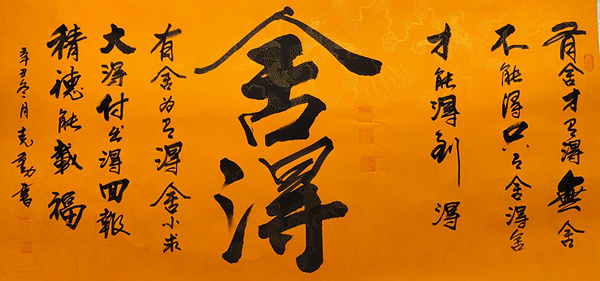 有舍才有得無舍
不能得只有舍得舍
才能得到得
舍得
有舍为有得舍小求
大得付出得回報
積德能載福
辛丑冬月克勤書